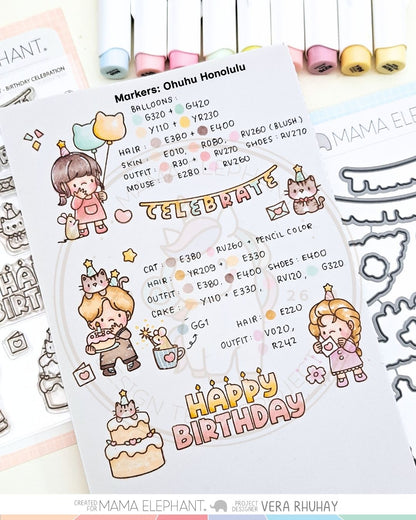 MAMA ELEPHANT.
BIRTHDAY CELEBRATION
MAMA ELEPHANT
Markers: Ohuhu Honolulu
BALLOONS:
G320 + G420
Y110 + YR230
HAIR: E380 + E400
SKIN: E010, R080, RV260 (BLUSH)
OUTFIT: R30 + RV270 SHOES: RV270
MOUSE: E280 + RV260
CELEBRATE
CAT: E380 RV260 + PENCIL COLOR
HAIR: YR209 + E330
OUTFIT: E380, E400 SHOES: E400
CAKE: Y110 + E330, RV120, G320
GG1
HAIR: E220
OUTFIT: V020,
R242
26
HAPPY
BIRTHDAY
CREATED FOR MAMA ELEPHANT. PROJECT DESIGNER VERA RHUHAY